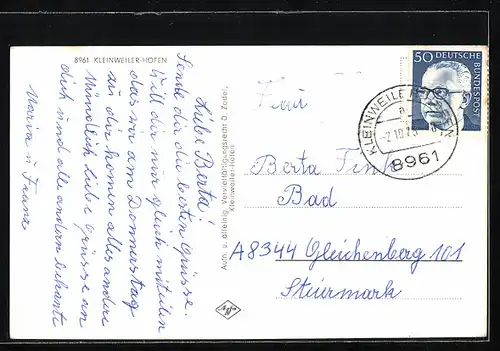 8961 KLEINWEILER-HOFEN
Liebe Berta!
Sende dir die besten Grüsse.
Will dir nur gleich mitteilen
das wir am Donnerstag
zu dir komen alles andere
Mündlich liebe Grüsse an
dich und alle andern bekante
Maria u Franz
Aufn. u. alleinig. Vervielfältigungsrecht D. Zoder,
Kleinweiler-Hofen
50 DEUTSCHE
BUNDESPOST
KLEINWEILER-HOFEN
a
8961
Frau
Berta Fink
Bad
A8344 Gleichenberg 101
Steiermark